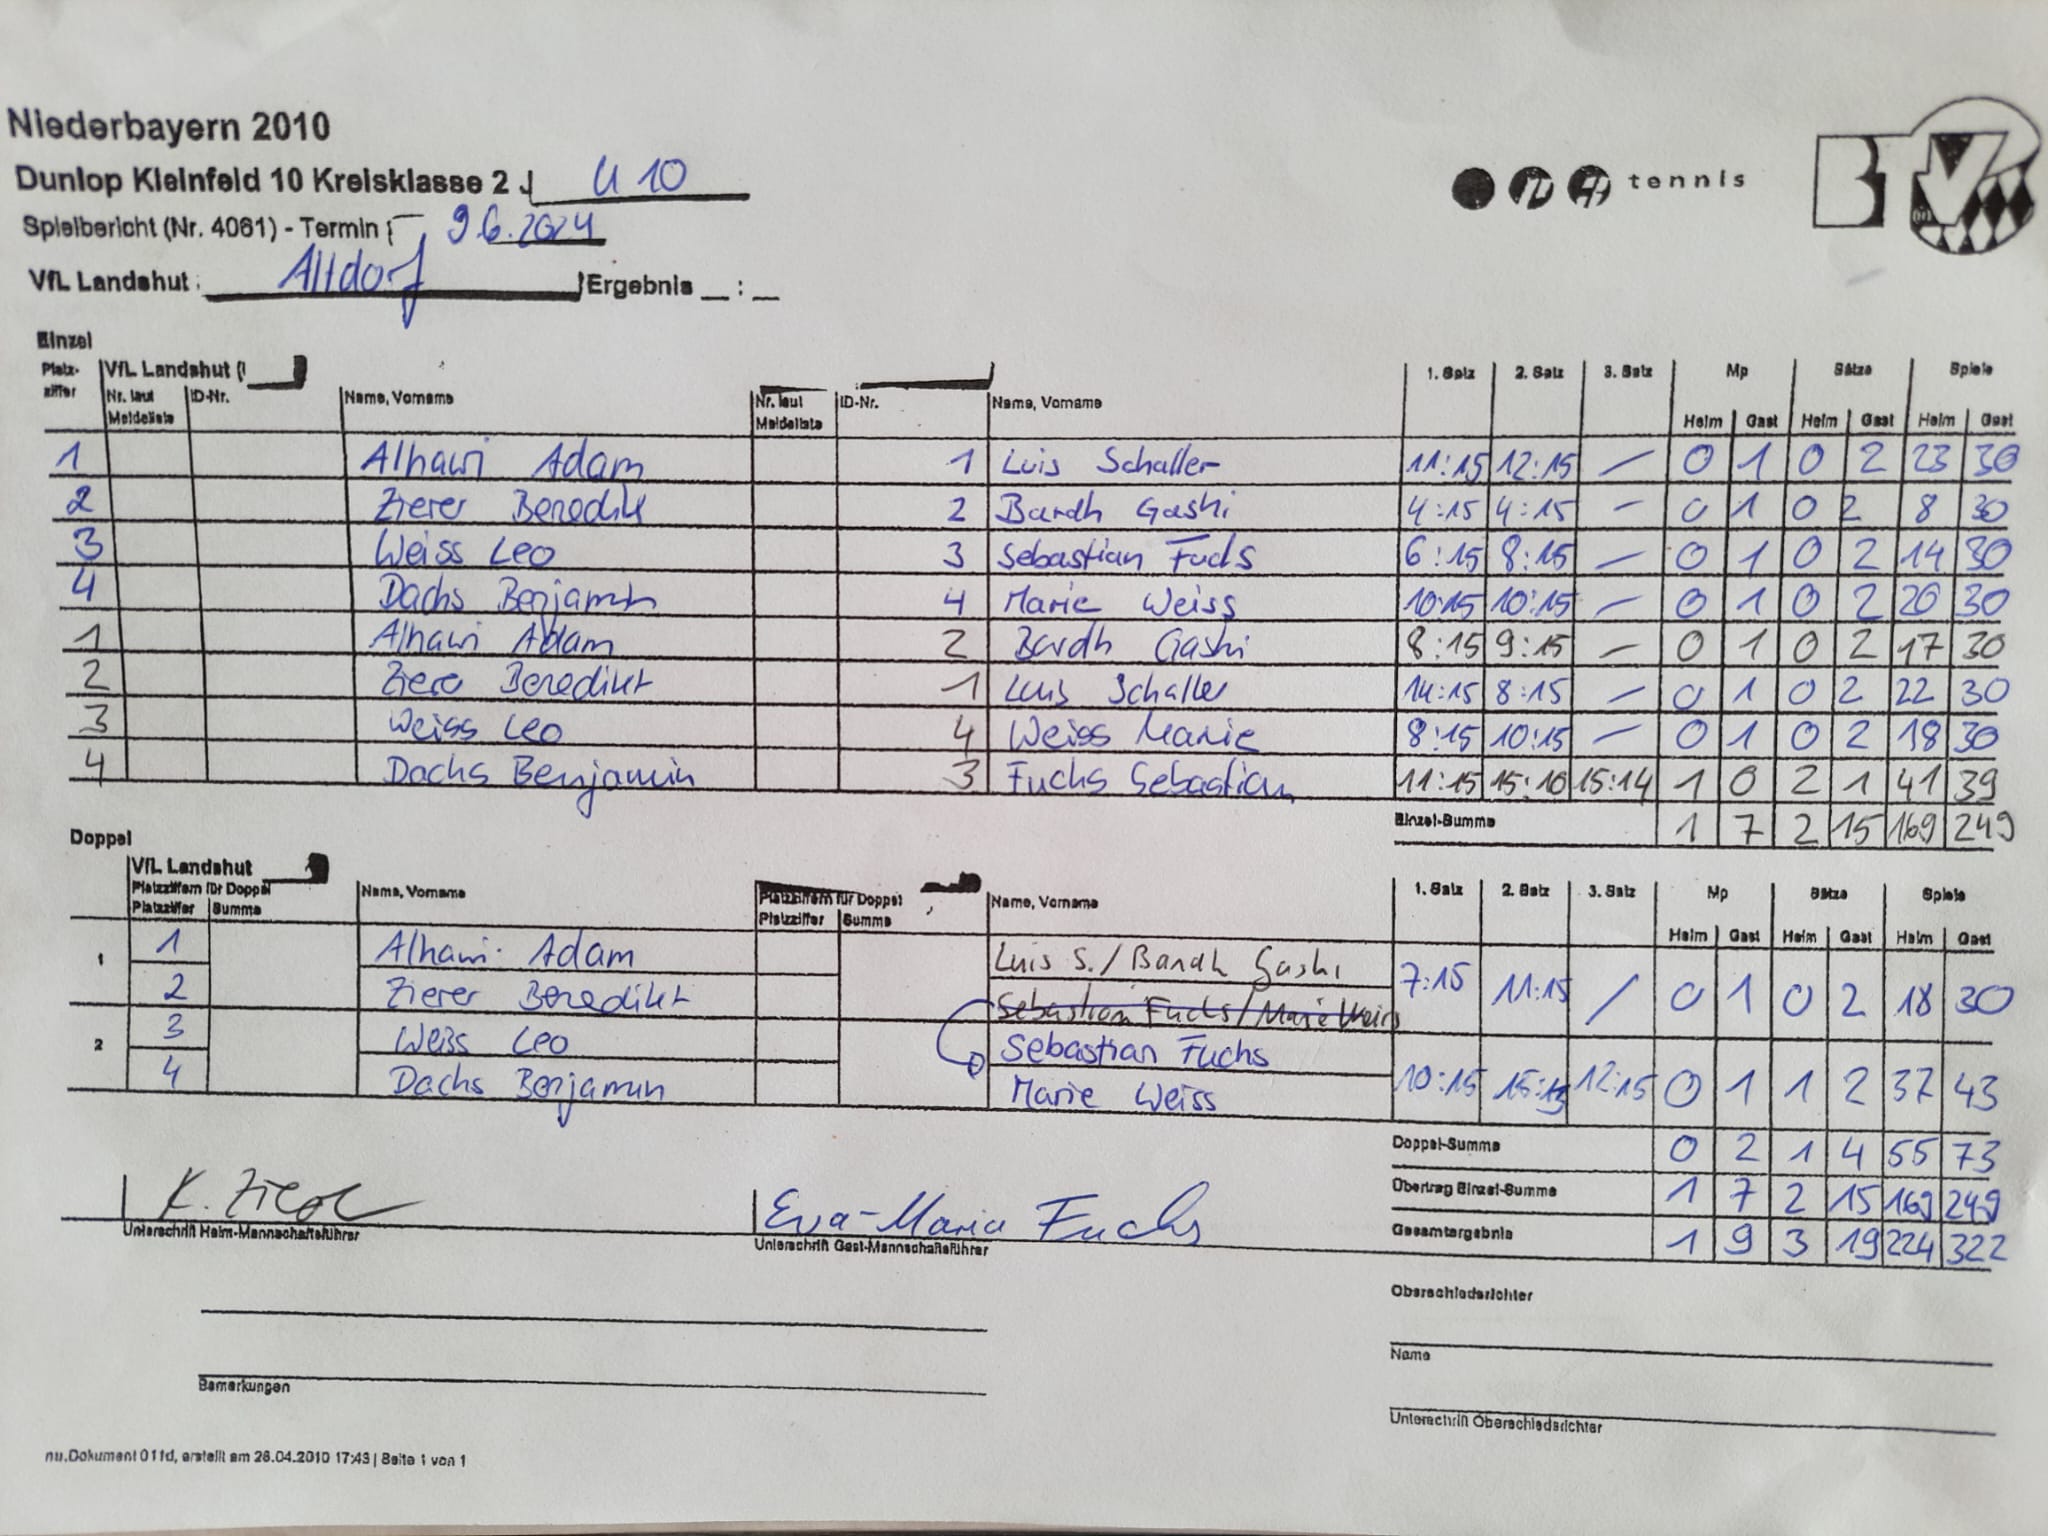 Niederbayern 2010
Dunlop Kleinfeld 10 Kreisklasse 2 U 10
Spielbericht (Nr. 4061) - Termin 9.6.2024
tennis
BTV
VfL Landshut : Altdorf Ergebnis __ : __
Einzel
Platz-ziffer VfL Landshut Nr. laut Meldeliste ID-Nr. Name, Vorname Nr. laut Meldeliste ID-Nr. Name, Vorname 1. Satz 2. Satz 3. Satz Mp Sätze Spiele
Heim Gast Heim Gast Heim Gast
1 Alhawi Adam 1 Luis Schaller 11:15 12:15 — 0 1 0 2 23 30
2 Zierer Benedikt 2 Bardh Gashi 4:15 4:15 — 0 1 0 2 8 30
3 Weiss Leo 3 Sebastian Fuchs 6:15 8:15 — 0 1 0 2 14 30
4 Dachs Benjamin 4 Marie Weiss 10:15 10:15 — 0 1 0 2 20 30
1 Alhawi Adam 2 Bardh Gashi 8:15 9:15 — 0 1 0 2 17 30
2 Zierer Benedikt 1 Luis Schaller 14:15 8:15 — 0 1 0 2 22 30
3 Weiss Leo 4 Weiss Marie 8:15 10:15 — 0 1 0 2 18 30
4 Dachs Benjamin 3 Fuchs Sebastian 11:15 15:10 15:14 1 0 2 1 41 39
Einzel-Summe 1 7 2 15 169 249
Doppel
VfL Landshut
Platzziffern für Doppel Name, Vorname Platzziffern für Doppel Name, Vorname 1. Satz 2. Satz 3. Satz Mp Sätze Spiele
Platzziffer Summe Platzziffer Summe Heim Gast Heim Gast Heim Gast
1 1 Alhawi Adam Luis S./Bardh Gashi 7:15 11:15 / 0 1 0 2 18 30
2 Zierer Benedikt Sebastian Fuchs/Marie Weiss
2 3 Weiss Leo Sebastian Fuchs 10:15 15:13 12:15 0 1 1 2 37 43
4 Dachs Benjamin Marie Weiss
Doppel-Summe 0 2 1 4 55 73
Übertrag Einzel-Summe 1 7 2 15 169 249
Gesamtergebnis 1 9 3 19 224 322
K. Zierer Eva-Maria Fuchs
Unterschrift Heim-Mannschaftsführer Unterschrift Gast-Mannschaftsführer
Oberschiedsrichter
Name
Bemerkungen
Unterschrift Oberschiedsrichter
nu.Dokument 011d, erstellt am 26.04.2010 17:43 | Seite 1 von 1